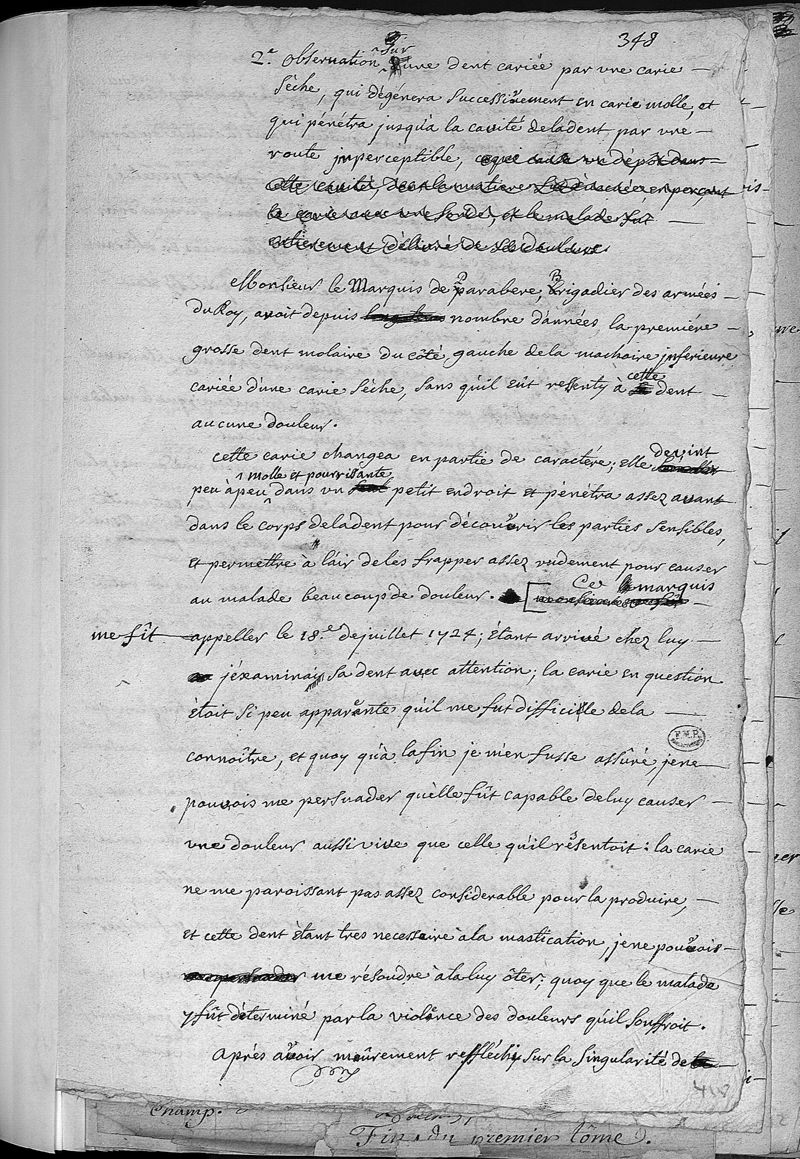 348
2.e observation sur une dent cariée par vne carie
sêche, qui dégénera successivement en carie molle, et
qui pénétra jusqu'a la cavité de la dent par vne
route jmperceptible, ce qui causa vn dépôt dans
cette cavité, dont la matiere
la carie avec vne sonde, et le malade fut
entierement délivré de sa douleur.
Monsieur le Marquis de Parabere, Brigadier des armées
du Roy, avoit depuis nombre d'années la premiére
grosse dent molaire du côté gauche de la machoire jnferieure
cariée d'une carie sêche, sans qu'il eût ressenty à cette dent
aucune douleur.
cette carie changea en partie de caractére; elle devint
peu à peu molle et pourrissante dans vn petit endroit et pénétra assez avant
dans le corps de la dent pour découvrir les parties sensibles,
et permettre à l'air de les frapper assez rudement pour causer
au malade beaucoup de douleur. [Ce marquis
me fit appeller le 18.e de juillet 1724; étant arrivé chez luy
j'éxaminai sa dent avec attention; la carie en question
étoit si peu apparante qu'il me fut difficille de la
connoître, et quoy qu'à la fin je m'en fusse assûré, je ne
pouvois me persuader qu'elle fût capable de luy causer
vne douleur aussi vive que celle qu'il résentoit: la carie
ne me paroissant pas assez considerable pour la produire,
et cette dent étant tres necessaire à la mastication, je ne pouvois
me persuader me résoudre à la luy ôter; quoy que le malade
y fût déterminé par la violence des douleurs qu'il souffroit.
Aprés avoir meûrement refflechy sur la singularité de la
418
Champ.
Fin du premier tôme.